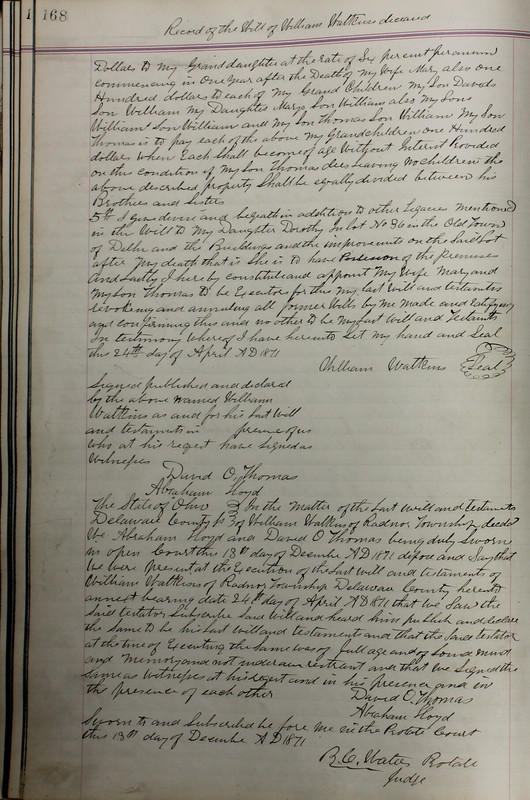 168
Record of the Will of William Watkins deceased
Dollars to my Granddaughter at the rate of Six percent per annum
commencing in One Year after the Death of My Wife Mary also one
Hundred dollars to each of My Grand Children My Son Davids
Son William My Daughter Marys Son William also My Sons
William Son William and My Son Thomas Son William My Son
Thomas is to pay each of the above My Grandchildren One Hundred
dollars When Each Shall become of age Without Interest Provided
on this condition if My Son Thomas dies Leaving No Children the
above described property Shall be equally divided between his
Brothers and Sisters
5th I give devise and bequeath in addition to other Legacies mentioned
in the Will to My Daughter Dorothy In lot No 96 in the Old Town
of Delhi and the Buildings and the improvements on the Said Lot
after My death that is She is to have Possession of the premises
And Lastly I hereby constitute and appoint My Wife Mary and
My Son Thomas to be Executors for this My Last Will and testaments
revoking and annuling all former Wills by me Made and Ratifying
and confirming this and no other to be My Last Will and Testaments
In testimony Whereof I have hereunto Set My hand and Seal
this 24th day of April AD 1871
William Watkins Seal
Signed published and declared
by the above named William
Watkins as and for his Last Will
and testaments in presence of us
Who at his regest have Signed as
Witnesses
David O. Thomas
Abraham Lloyd
The State of Ohio } In the Matter of the Last will and testaments
Delaware County ss } of William Watkins of Radnor Township decsd
We Abraham Lloyd and David O Thomas being duly Sworn
in open Court this 13th day of December AD 1871 depose and Say that
We were present at the Execution of the Last will and testaments of
William Watkins of Radnor Township Delaware County hereunto
annext bearing date 24th day of April AD 1871 that we Saw the
Said testator Subscribe Said Will and heard him publish and declare
the Same to be his Last will and testament and that the Said testator
at the time of Executing the Same was of full age and of Sound mind
and Memory and not under any restraint and that we Signed the
Same as Witnesses at his regest and in his presence and in
the presence of each other
David O. Thomas
Abraham Lloyd
Sworn to and Subscribed before me in the Probate Court
this 13th day of December AD 1871
B. C. Waters Probate
Judge